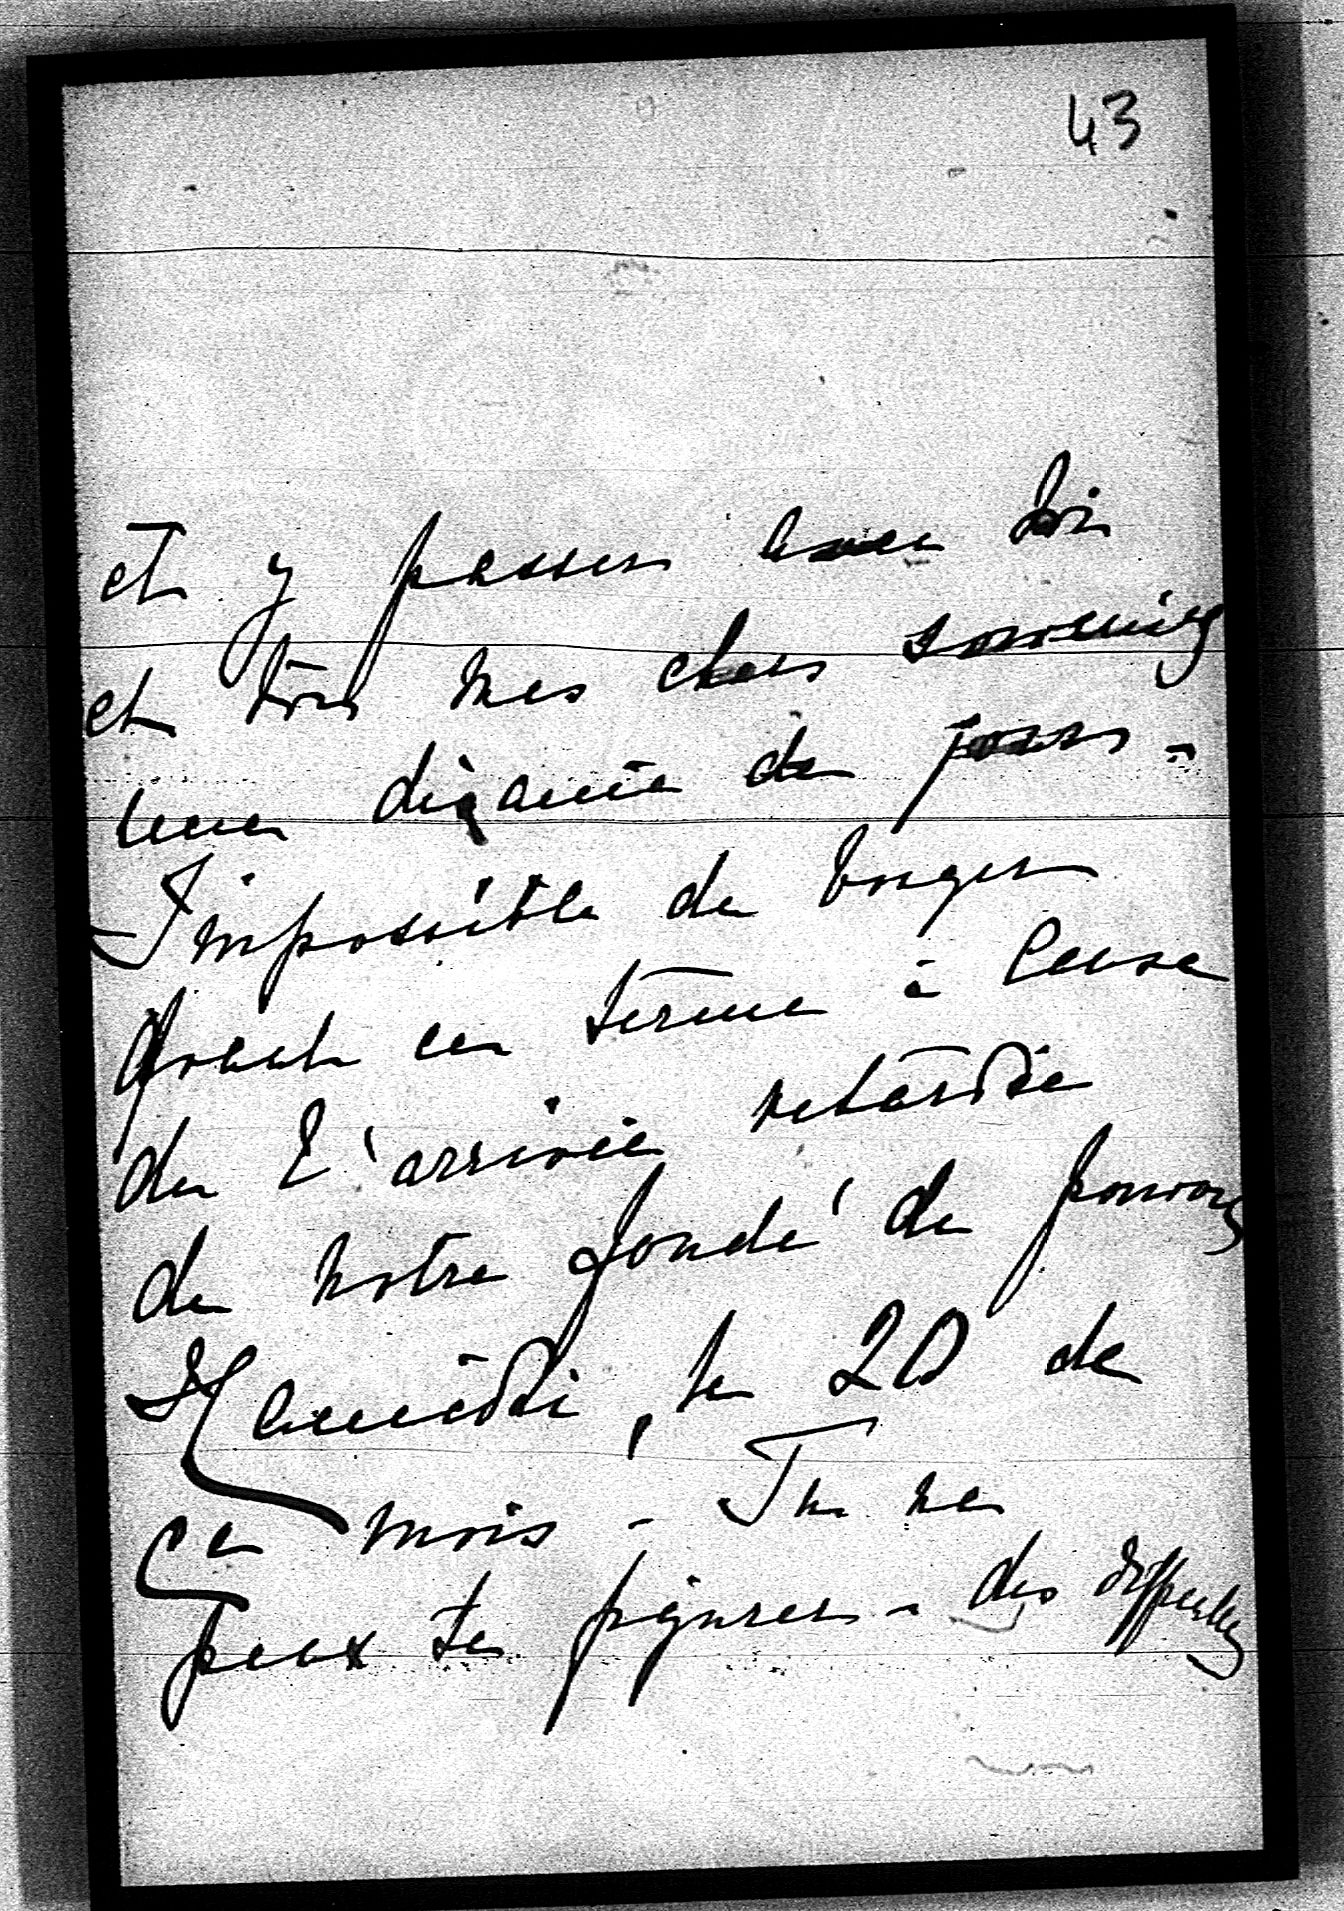 43
et y passer avec toi
et tous mes chers souvenirs
une dizaine de jours -
Impossible de bouger
avant ce terme à cause
de l'arrivée retardée
de notre fondé de pouvoir
Samedi, le 20 de
ce mois - Tu ne
peux te figurer - des difficultés